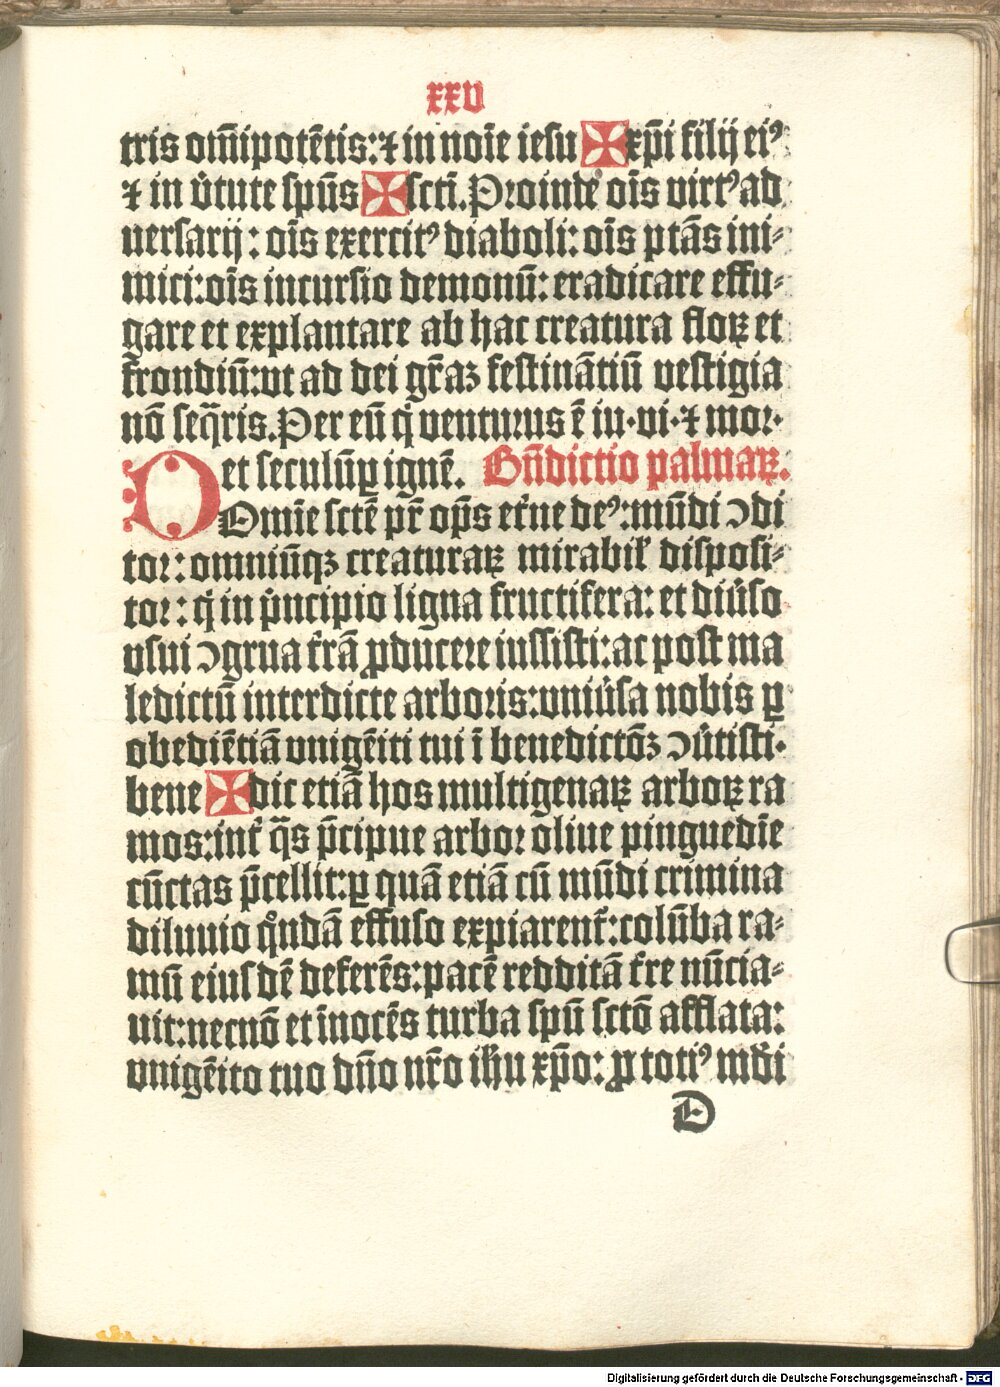 xxv
tris om̄ipotētis: ⁊ in noīe iesu ✠ xp̄i filij eiꝰ
⁊ in v̾tute sp̄us ✠ sctī. Proinde oīs virtꝰ ad
uersarij: oīs exercitꝰ diaboli: oīs ptās ini⸗
mici: oīs incursio demonū: eradicare effu⸗
gare et explantare ab hac creatura floꝝ et
frondiū: vt ad dei gr̄aꝫ festinātiū vestigia
nō seq̄ris. Per eū q̇ venturus ē iu·vi·⁊ mor·
et seculū ꝑ ignē. Bn̄dictio palmaꝝ.
DOmīe sctē pr̄ op̄s et̾ne deꝰ: mūdi ↄdi
tor: omniūqꝫ creaturaꝝ mirabil̾ disposi⸗
tor: q̇ in pͥncipio ligna fructifera: et diu̾so
vsui ↄgrua t̾rā ꝓducere iussisti: ac post ma
ledictū interdicte arboris: vniu̾sa nobis ꝑ
obediētiā vnigēiti tui ī benedictōꝫ ↄu̾tisti·
bene ✠ dic etiā hos multigenaꝝ arboꝝ ra
mos: int̾ q̄s p̄cipue arbor oliue pinguedīe
cūctas p̄cellit: ꝑ quā etiā cū mūdi crimina
diluuio qͦndā effuso expiarent̾: colūba ra⸗
mū eiusdē deferēs: pacē redditā t̾re nūcia⸗
uit: necnō et īnocēs turba sp̄u sctō afflata:
vnigēito tuo dn̄o nr̄o ih̄u xp̄o: ꝓ totiꝰ mūdi
D
Digitalisierung gefördert durch die Deutsche Forschungsgemeinschaft - DFG